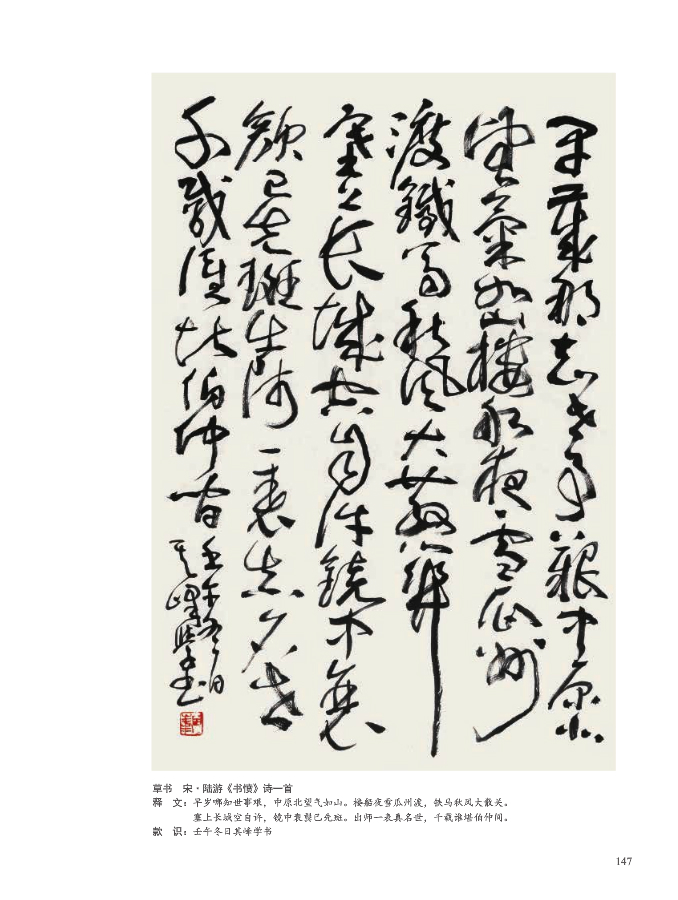 早歲那知世事艱中原北
望氣如山樓船夜雪瓜州
渡鐵馬秋風大散關
塞上長城空自許鏡中衰
已先斑出師一表真名世
千載誰堪伯仲間 壬午冬日
其峰學書
草书 宋·陆游《书愤》诗一首
释 文：早岁哪知世事艰，中原北望气如山。楼船夜雪瓜州渡，铁马秋风大散关。
塞上长城空自许，镜中衰鬓已先斑。出师一表真名世，千载谁堪伯仲间。
款 识：壬午冬日其峰学书
147